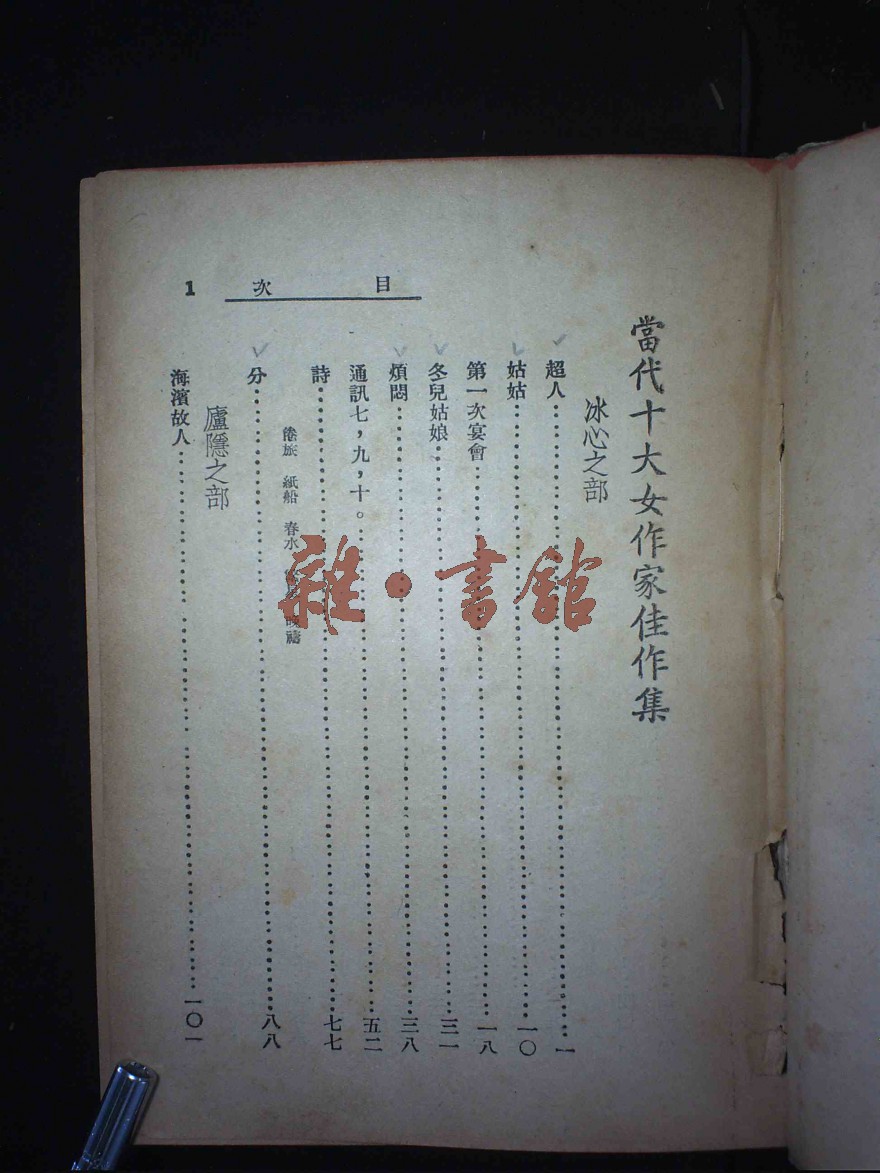 當代十大女作家佳作集
冰心之部
超人……一
姑姑……一〇
第一次宴會……一八
冬兒姑娘……三一
煩悶……三八
通訊七，九，十。……五二
詩……七七
倦旅 紙船 春水 晚禱
分……八八
廬隱之部
海濱故人……一〇一
目次
1
雜·書館